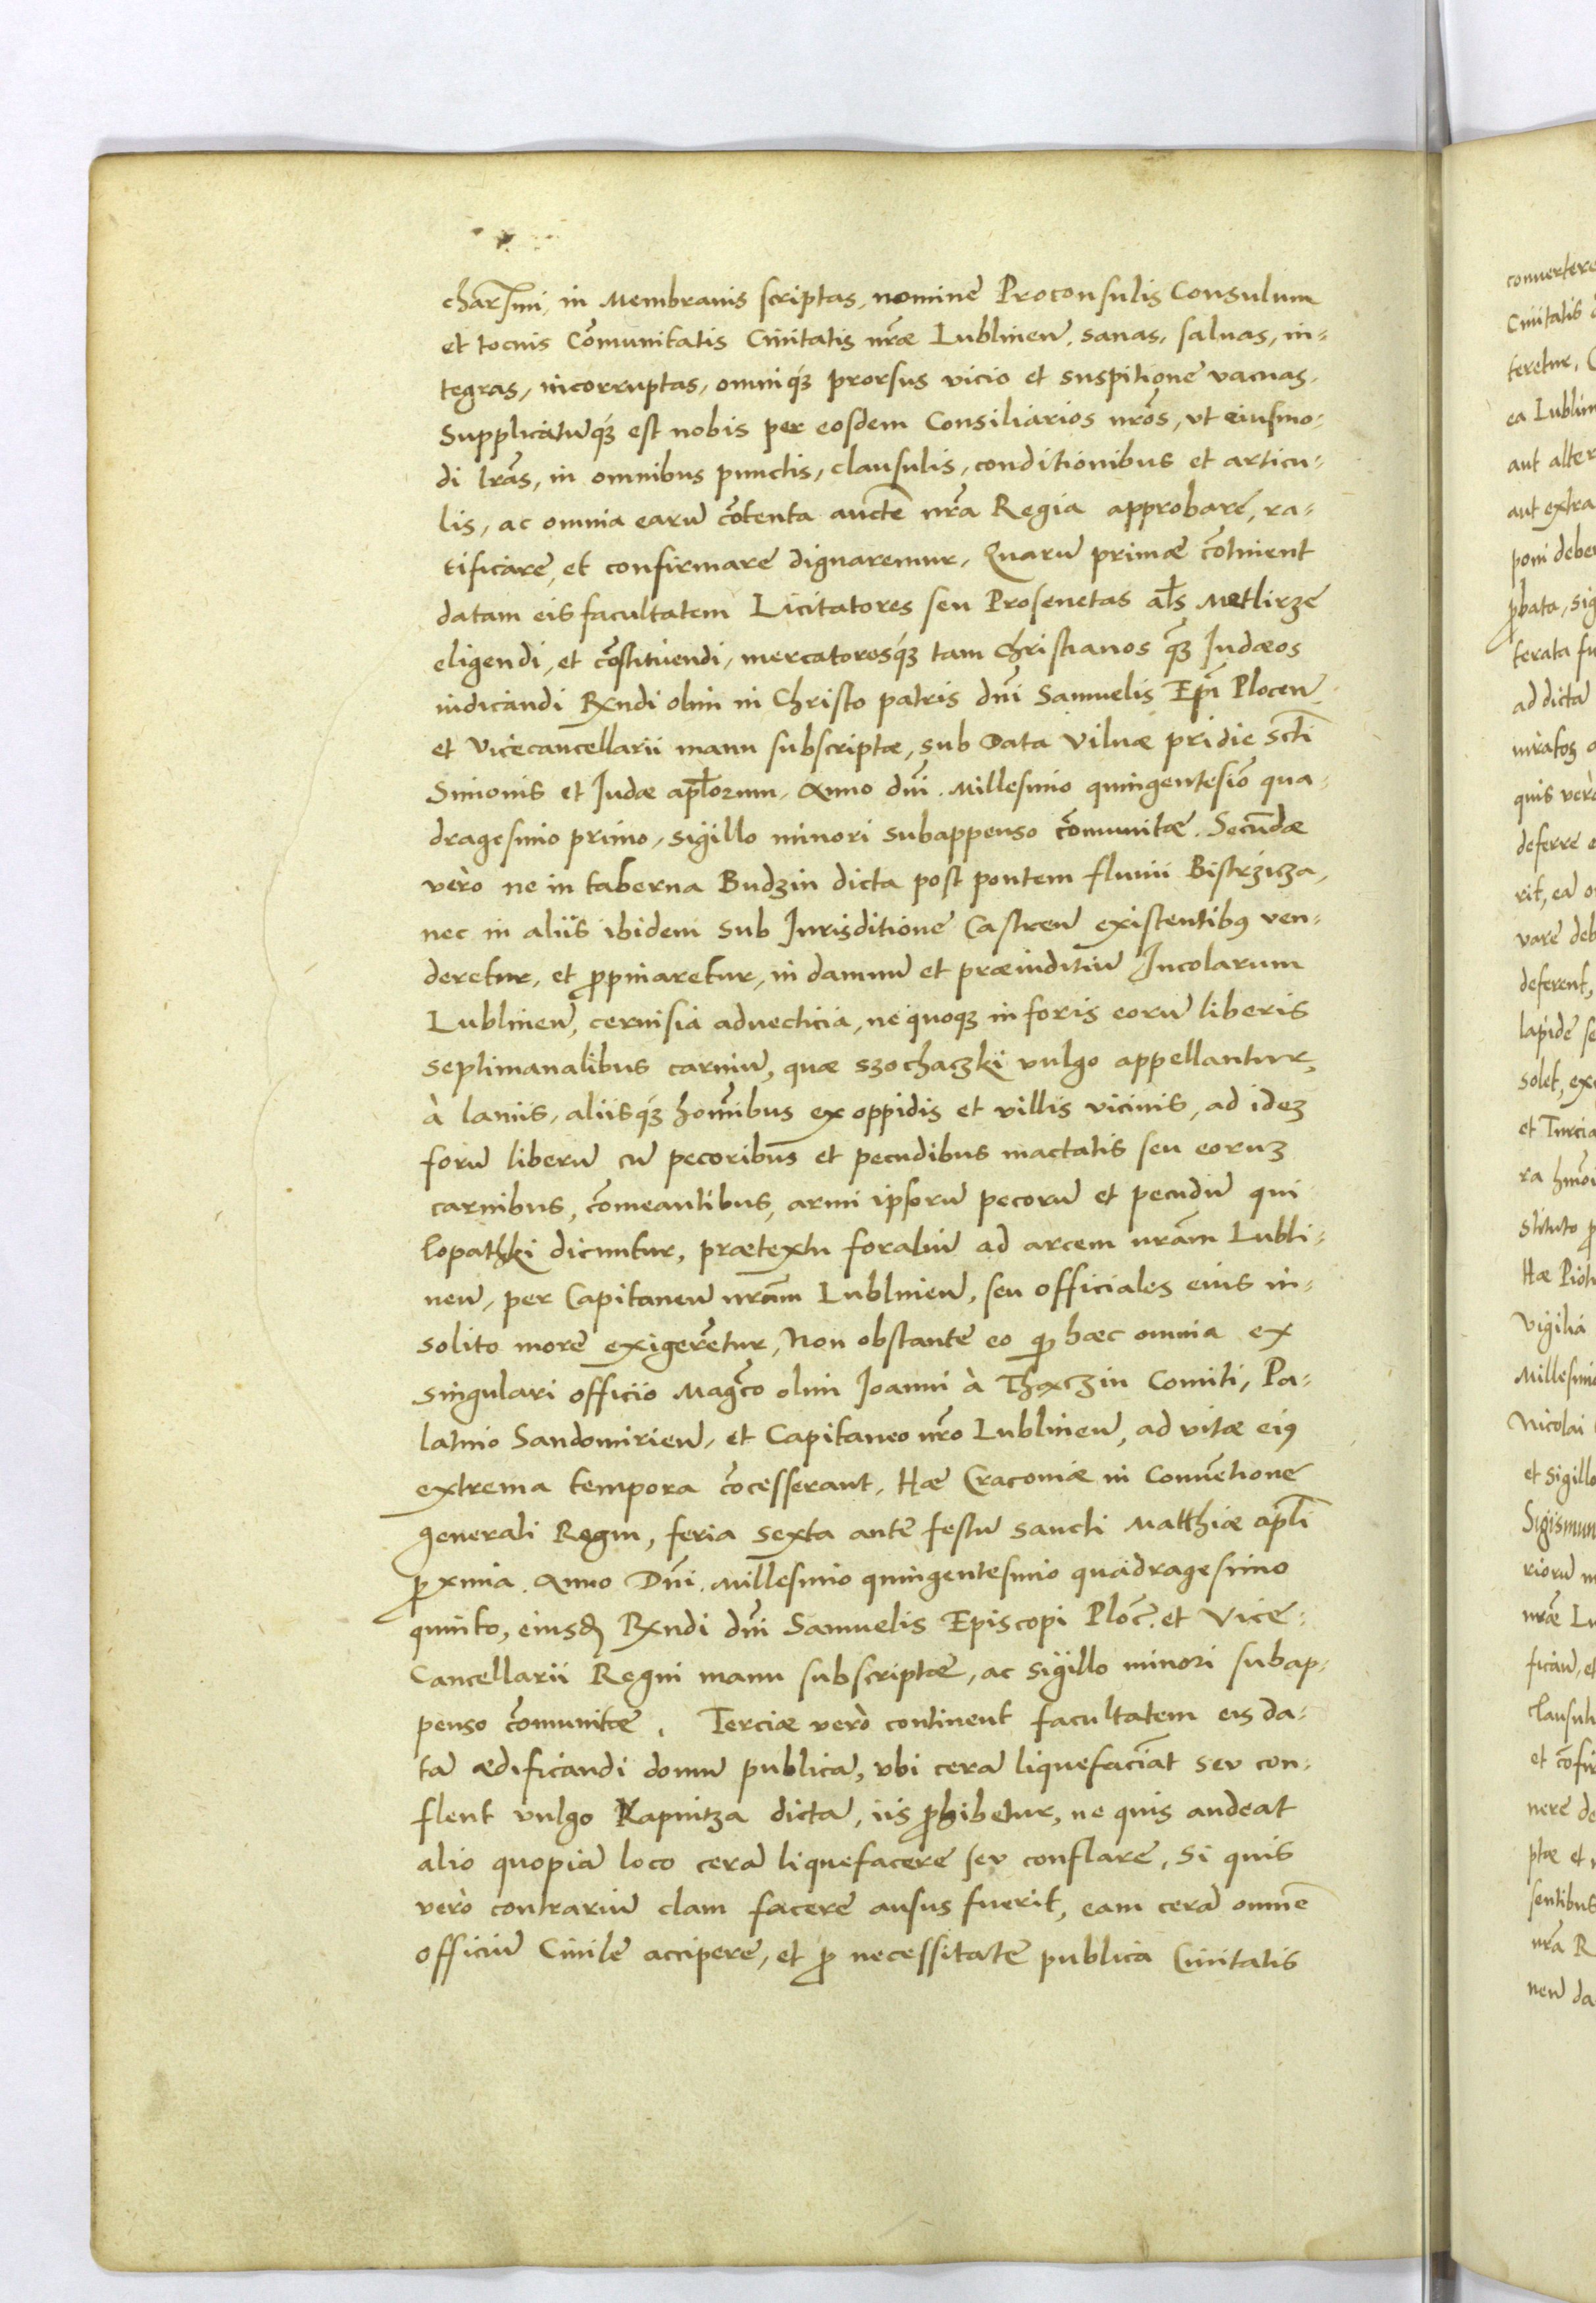 char̃smi, in Membranis scriptas, nomine Proconsulis Consulum
et tocius Com̃unitatis Ciuitatis nr̃æ Lublineñ. sanas, saluas, in-
tegras, incorruptas, omniqꝫ prorsus vicio et suspitione vacuas.
Supplicatũqꝫ est nobis per eosdem Consiliarios nr̃os, vt eiusmo-
di lr̃as, in omnibus punctis, clausulis, conditionibus et articu-
lis, ac omnia earũ cõtenta aucte̅ nr̃a Regia approbare, ra-
tificare, et confirmare dignaremur. Quarũ primæ cõtinent
datam eis facultatem Licitatores seu Prosenetas al̃s Metlirze
eligendi, et cõstituendi, mercatoresqꝫ tam Christianos qꝫ Iudæos
iudicandi Rx̃ndi olim in Christo patris dñi Samuelis Ep̃i Ploceñ
et Vicecancellarii manu subscriptæ, sub Data Vilnæ pridie Sc̃ti
Simonis et Iudæ apl̃orum. Anno dñi. Millesimo quingentesiõ qua-
dragesimo primo, sigillo minori subappenso cõmunitæ. Secũdæ
verò ne in taberna Budzin dicta post pontem fluuii Bistrzicza,
nec in aliis ibidem sub Iurisditione Castreñ existentibꝰ ven-
deretur, et ꝓpinaretur, in damnũ et præiuditiũ Incolarum
Lublineñ, ceruisia aduecticia, ne quoqꝫ in foris eorũ liberis
septimanalibus carniũ, quæ szochaczki vulgo appellantur,
à laniis, aliisqꝫ hom̃ibus ex oppidis et villis vicinis, ad ideꝫ
forũ liberũ cũ pecoribus et pecudibus mactatis seu eoruꝫ
carnibus, cõmeantibus, armi ipsorũ pecorũ et pecudũ qui
lopathki dicuntur, prætextu foraliũ ad arcem nr̃am Lubli-
neñ, per Capitaneũ nr̃am Lublineñ, seu officiales eius in-
solito more exigere̅tur, Non obstante eo ꝙ hæc omnia ex
singulari officio Mag̃co olim Ioanni à Thaczin Comiti, Pa-
latino Sandomirieñ, et Capitaneo nr̃o Lublineñ, ad vitæ eiꝰ
extrema tempora cõcesserant. Hæ Cracouiæ in Conue̅tione
generali Regni, feria sexta ante festũ sancti Matthiæ apl̃i
ꝓxima. Anno Dñi. Millesimo quingentesimo quadragesimo
quinto, eiusdꝫ Rx̃ndi dñi Samuelis Episcopi Ploc̃. et Vice-
Cancellarii Regni manu subscriptæ, ac sigillo minori subap-
penso cõmunitæ. Terciæ verò continent facultatem eis da-
tã ædificandi domũ publicã, vbi cerã liquefaciãt seu con-
flent vulgo Kapnitza dictã, iis ꝓhibetur, ne quis audeat
alio quopiã loco cerã liquefacere seu conflare, Si quis
verò contrariũ clam facere ausus fuerit, eam cerã omne̅
officiũ Ciuile accipere, et ꝓ necessitate publica Ciuitatis
conuertere
Ciuitatis
teretur,
ea Lublin
aut alter
aut extra
poni debe
ꝓbata, sig
terata fu
ad dictã
quis verò
deferre e
rit, eã o
vare deb
deferent,
lapide se
solet, ex
et Turcia
stituto
Hæ Piotr
Vigilia
Millesimo
Nicolai
et Sigillo
Sigismun
riorũ
nr̃æ Lu
ficãũ, et
clausul
et cõfir
nere de
ptæ et
sentibus
nr̃a R
neñ da